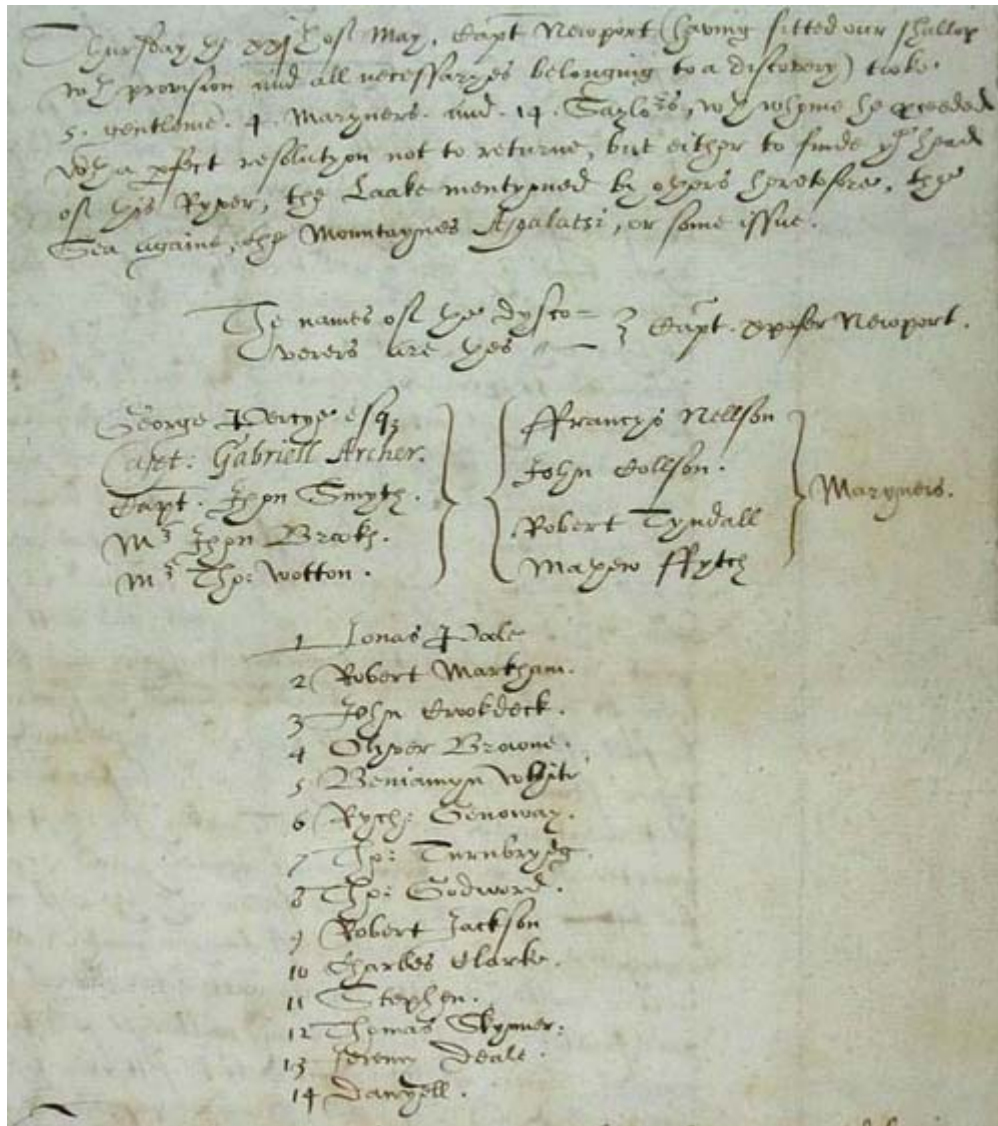 Thursday ye xxjth of May, Capt Newport (having fitted our shallop
wth provision and all necessaryes belonging to a discovery) tooke.
5. gentlome. 4. Maryners. and. 14. Saylors, wth whome he pceeded
wth a pfect resolutyon not to returne, but either to finde ye head
of this Ryver, the Laake mentyoned by others heretofore, the
Sea againe, the Mountaynes Apalatsi, or some issue.
The names of the dysco-
verers are thes
Capt. xpofer Newport.
George Percye esq
Capt: Gabriell Archer.
Capt. Jhon Smyth.
Mr Jhon Brooks.
Mr Tho: Wotton.
ffrancys Nellson
John Collson.
Robert Tyndall
Mathew ffytch
Maryners.
1 Jonas Poole
2 Robert Markham.
3 John Crookdeck.
4 Olyver Browne.
5 Beniamyn White
6 Rych: Genoway.
7 Tho: Turnbrydg.
8 Tho: Godword.
9 Robert Jackson
10 Charles Clarke.
11 Stephen.
12 Thomas Skynner.
13 Jeremy Deale.
14 Danyell.